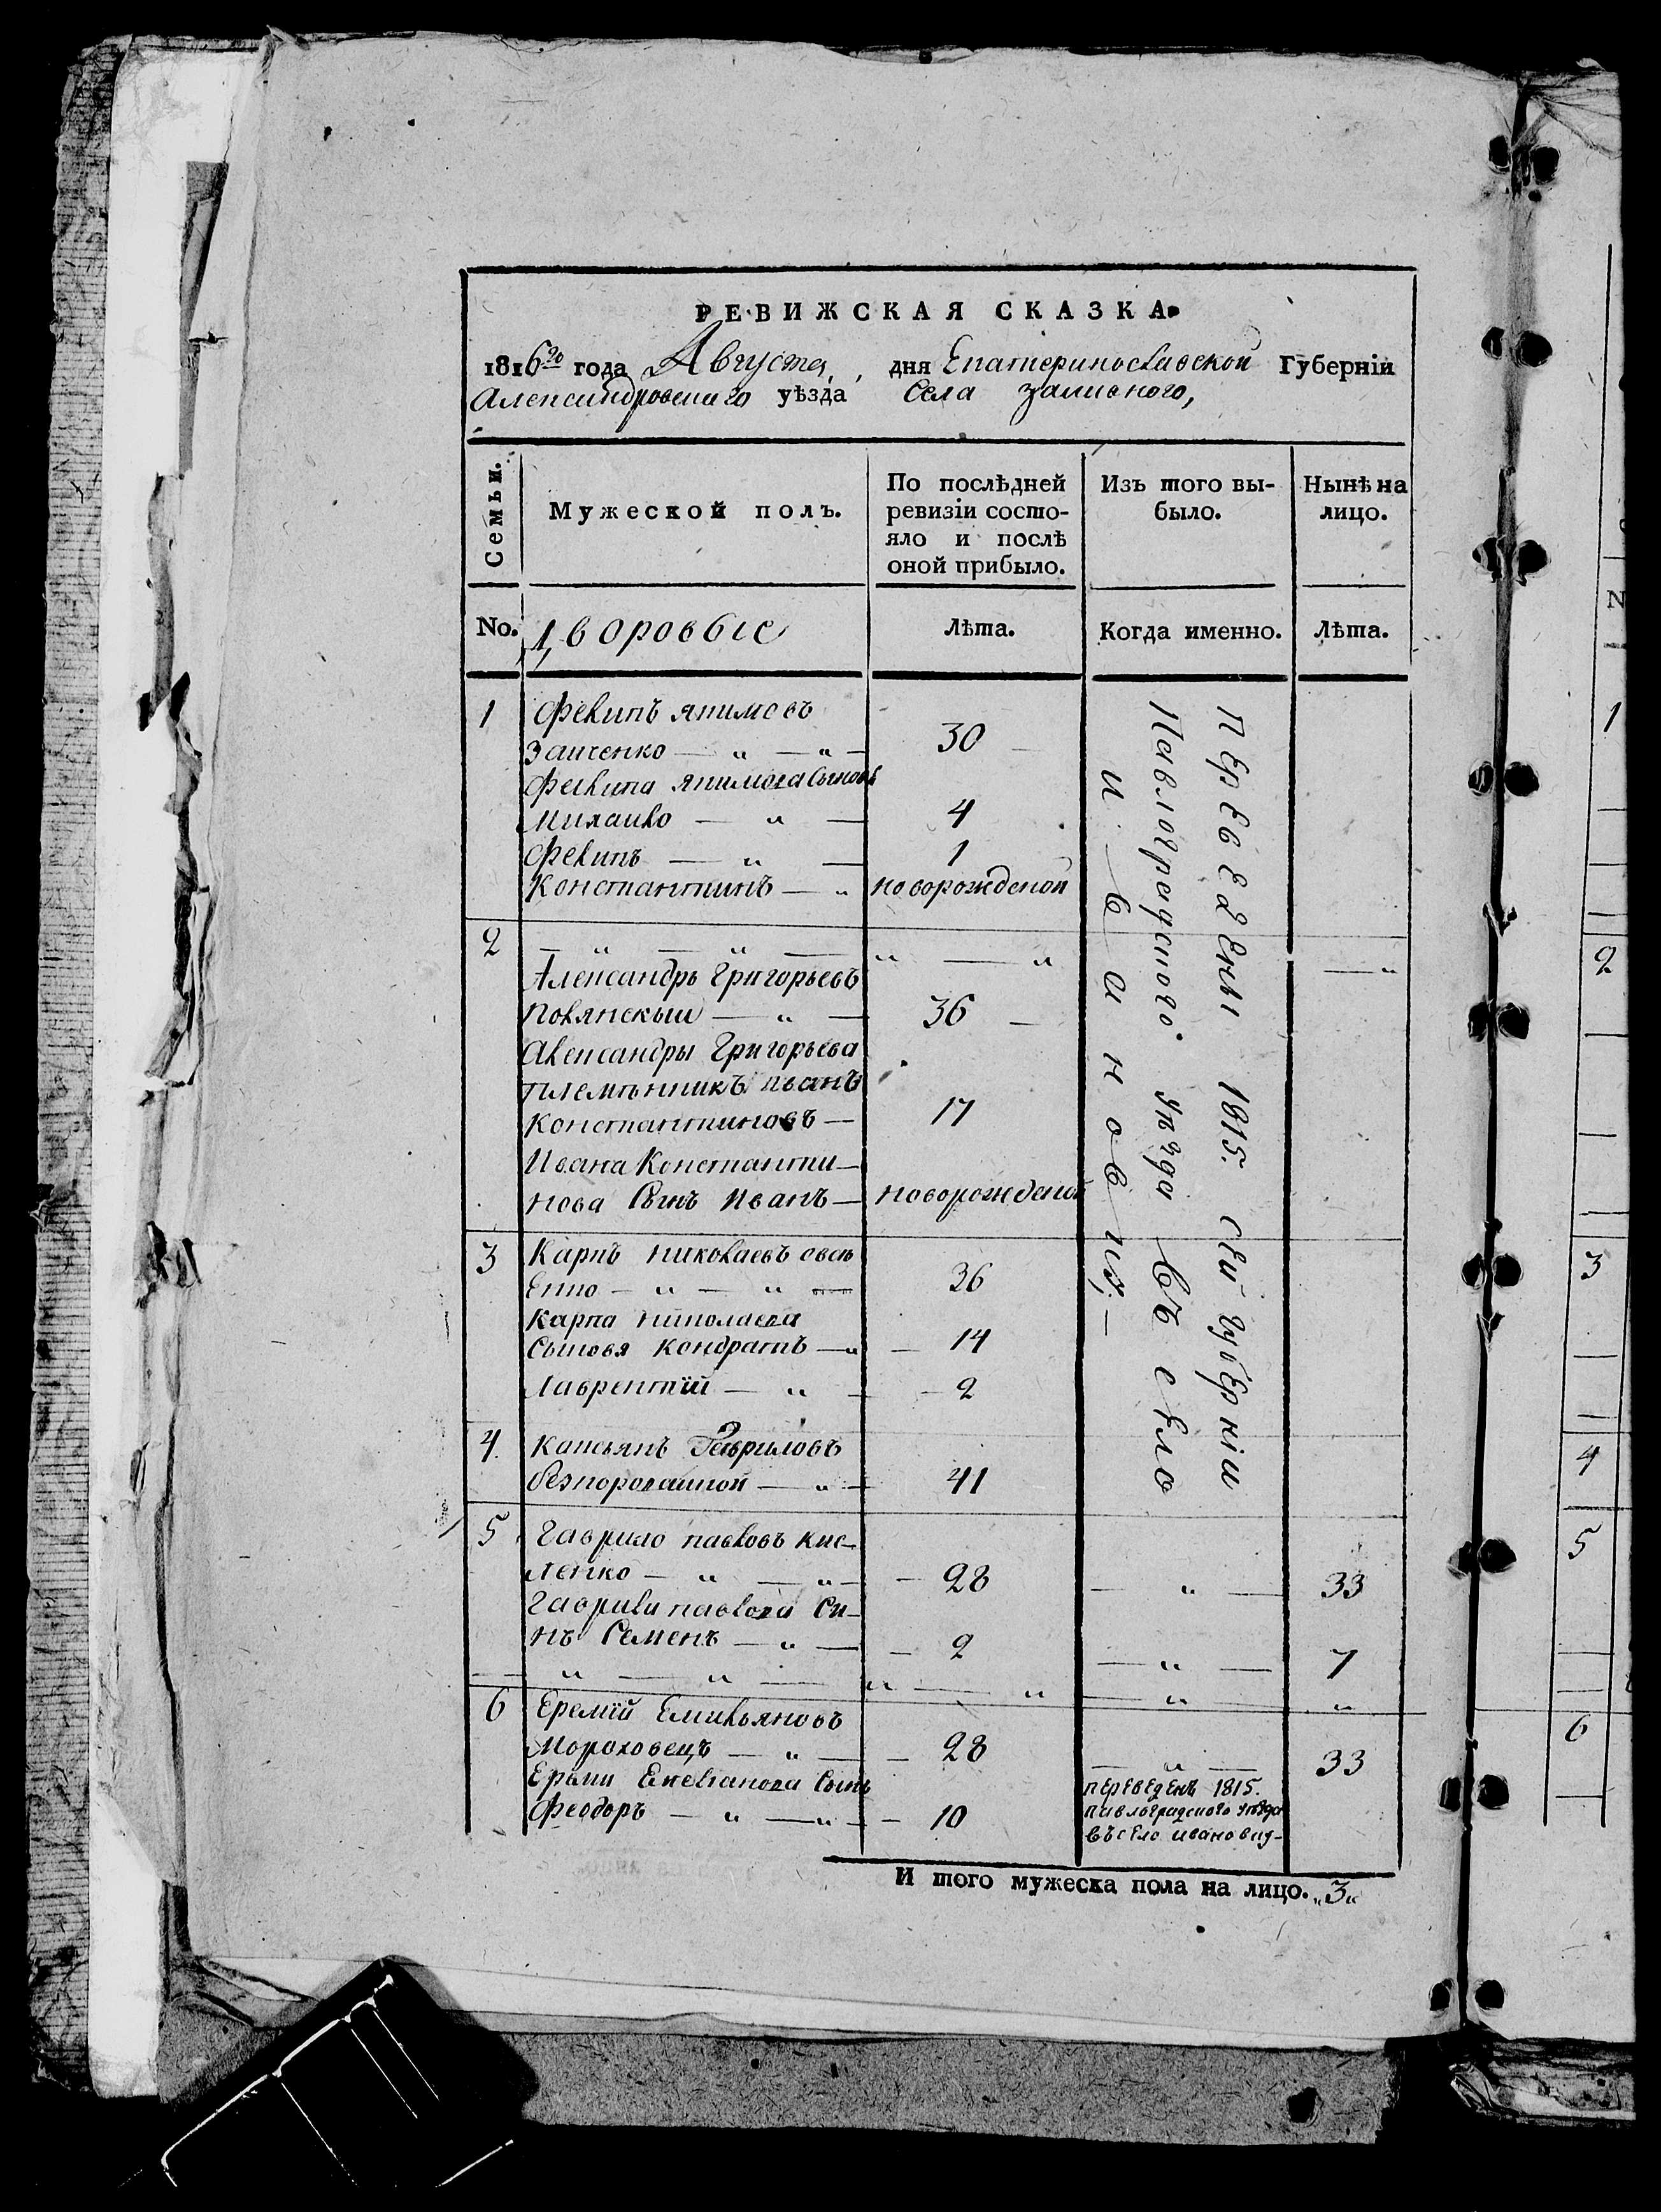 РЕВИЖСКАЯ СКАЗКА.
1816го года Августа, дня Екатеринославской Губерніи
Александровскаго уѣзда Села Заливного,
Семьи.
Мужеской полъ.
По послѣдней
ревизіи состо-
яло и послѣ
оной прибыло.
Изъ того вы-
было.
Нынѣ на
лицо.
No. Дворовые Лѣта. Когда именно. Лѣта.
1 Филипъ якимовъ
Заиченко — „ — „ — 30 —
Филипа якимова сыновя
Михаило — „ — 4
Филипъ — „ — 1
Константинъ — „ новорожденой
переведены 1815. сей губерніи
Павлоградского уезда въ село
Ивановку. —
2 — „ — „ — „ — „ — „
Александръ Григорьевъ
Полянскый — „ — 36 —
Александры Григорьева
племѣнникъ иванъ
Константиновъ — 17
Ивана Константи—
нова Сынъ Иванъ — новорожденой
3 Карпъ николаевъ овсѣ
енко — „ — „ — 36
Карпа николаева
Сыновя Кондратъ — „ — 14
Лаврентій — „ — — 2
4 Касьянъ Гавриловъ
41
5 Гаврило павловъ кис—
ленко — „ — „ — — 28 — „ — 33
Гаврила павлова Си—
нъ Семенъ — „ — — 2 — „ — 7
— „ — „ — „ — „ — „ — „
6 Еремій Емильяновъ
Мороховецъ — „ — — 28 — „ — 33
Сынъ
Феодоръ — „ — „ — — 10
переведенъ 1815.
павлоградского уезда
въ село ивановку—
И того мужеска пола на лицо. „3„
1
2
3
4
5
6